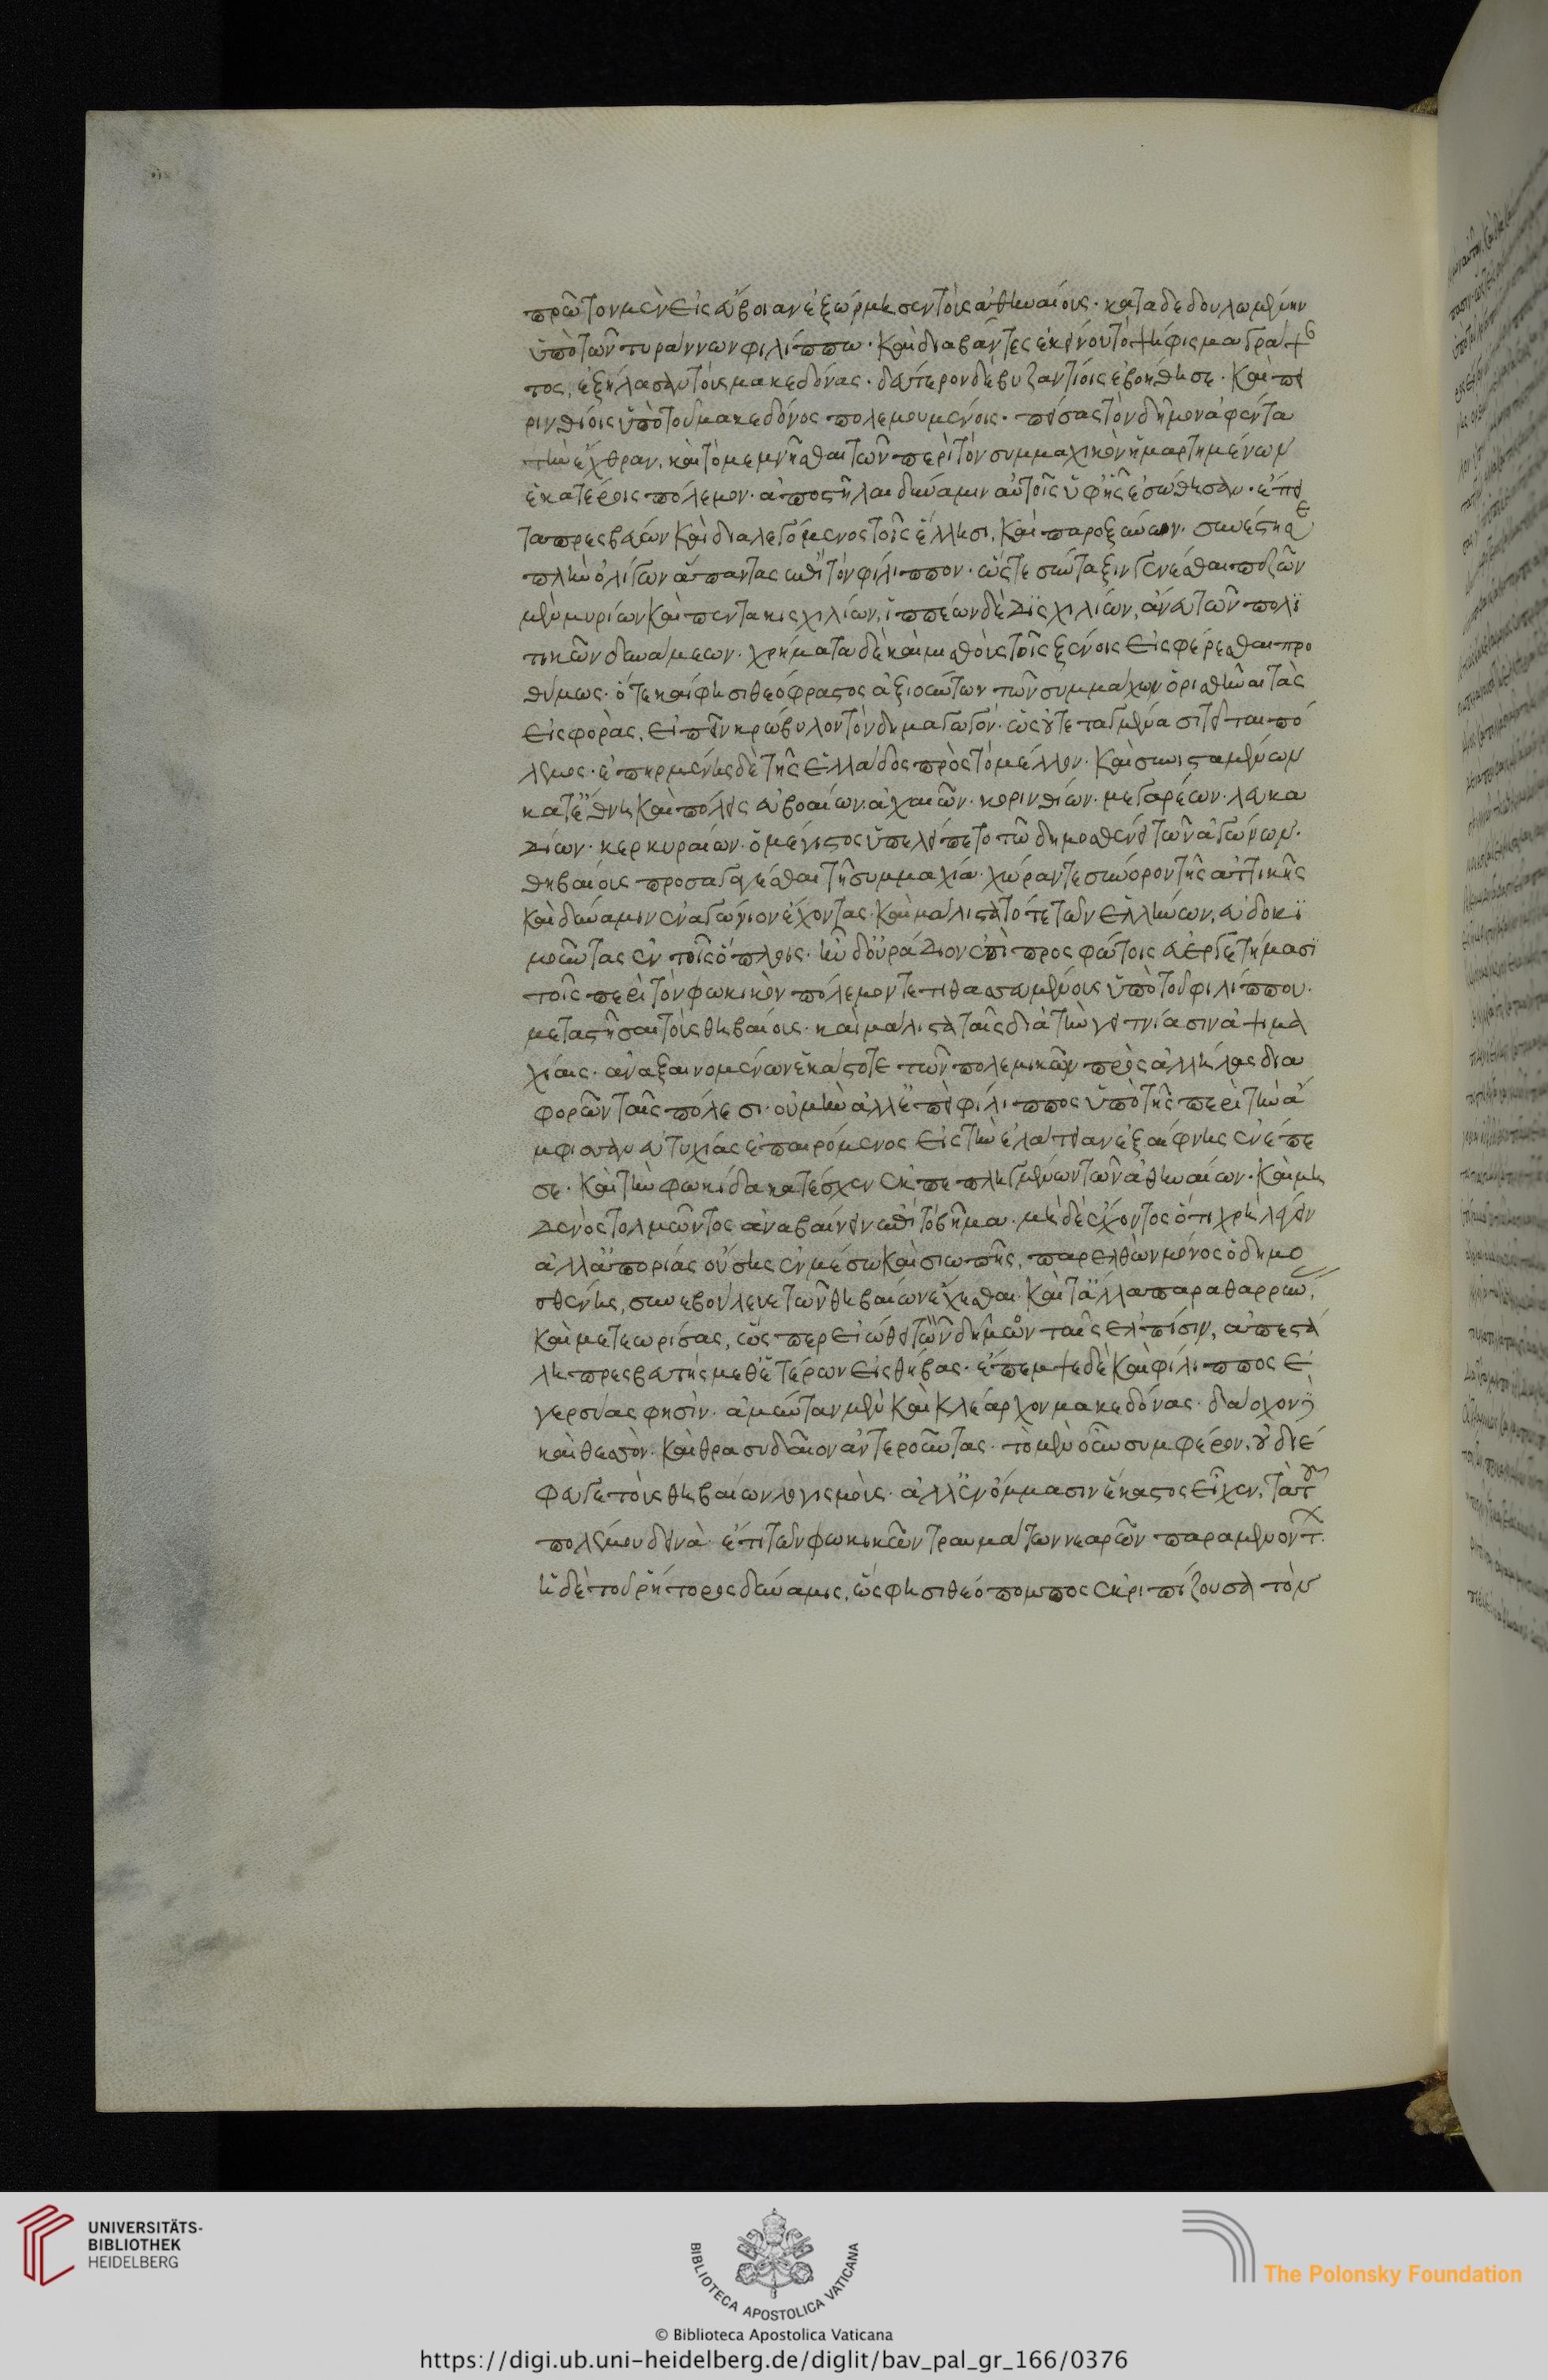 πρῶτον μὲν εἰς εὔβοιαν ἐξώρμησεν τοὺς ἀθηναίους· καταδεδουλωμένην
ὑπὸ τῶν τυράννων φιλίππω· καὶ διαβάντες ἐκείνου τὸ ψήφισμα γράψαν
τος, ἐξήλασαν τοὺς μακεδόνας· δεύτερον δὲ βυζαντίοις ἐβοήθησε· καὶ πε
ρινθίοις ὑπὸ τοῦ μακεδόνος πολεμουμένοις· πείσας τὸν δῆμον ἀφέντα
τὴν ἔχθραν, καὶ τὸ μεμνῆσθαι τῶν περὶ τὸν συμμαχικὸν ἡμαρτημένων
ἑκατέροις πόλεμον· ἀποστῆλαι δύναμιν αὐτοῖς ὑφ' ἧς ἐσώθησαν· ἔπει
τα πρεσβεύων καὶ διαλεγόμενος τοῖς ἕλλησι, καὶ παροξύνων· συνέστησε
πλὴν ὀλίγων ἅπαντας ἐπὶ τὸν φίλιππον· ὥστε σύνταξιν γενέσθαι πεζῶν
μὲν μυρίων καὶ πεντακισχιλίων, ἱππέων δὲ δισχιλίων, ἄνευ τῶν πολι
τικῶν δυνάμεων· χρήματα δὲ καὶ μισθοὺς τοῖς ξένοις εἰσφέρεσθαι προ
θύμως· ὅτε καί φησι θεόφραστος ἀξιούντων τῶν συμμάχων ὁρισθῆναι τὰς
εἰσφορὰς, εἰπεῖν κρώβυλον τὸν δημαγωγόν· ὡς οὐ τεταγμένα σιτεῖται πό
λεμος· ἐπηρμένης δὲ τῆς ἑλλάδος πρὸς τὸ μέλλον· καὶ συνισταμένων
κατ' ἔθνη καὶ πόλεις εὐβοαίων ἀχαιῶν· κορινθίων· μεγαρέων· λευκα
δίων· κερκυραίων· ὁ μέγιστος ὑπελείπετο τῶ δημοσθένει τῶν ἀγώνων·
θηβαίους προσαγαγέσθαι τῆ συμμαχία· χώραν τε σύνορον τῆς ἀττικῆς
καὶ δύναμιν ἐναγώνιον ἔχοντας· καὶ μάλιστα τότε τῶν ἑλλήνων, εὐδοκι
μοῦντας ἐν τοῖς ὅπλοις· ἦν δ' οὐ ῥάδιον ἐπὶ προσφάτοις εὐεργετήμασι
τοῖς περὶ τὸν φωκικὸν πόλεμον τετιθασευμένους ὑπὸ τοῦ φιλίππου·
μεταστῆσαι τοὺς θηβαίους· καὶ μάλιστα ταῖς διὰ τὴν γειτνίασιν ἁψιμα
χίαις· ἀναξαινομένων ἑκάστοτε τῶν πολεμικῶν πρὸς ἀλλήλας δια
φορῶν ταῖς πόλεσι· οὐ μὴν ἀλλ' ἐπεὶ φίλιππος ὑπὸ τῆς περὶ τὴν ἄ
μφισσαν εὐτυχίας ἐπαιρόμενος εἰς τὴν ἐλάτειαν ἐξαίφνης ἐνέπε
σε· καὶ τὴν φωκίδα κατέσχεν ἐκπεπληγμένων τῶν ἀθηναίων· καὶ μη
δενὸς τολμῶντος ἀναβαίνειν ἐπὶ τὸ βῆμα· μηδὲ ἔχοντος ὅτι χρὴ λέγειν
ἀλλ' ἀπορίας οὔσης ἐν μέσω καὶ σιωπῆς, παρελθὼν μόνος ὁ δημο
σθένης, συνεβούλευε τῶν θηβαίων ἔχεσθαι· καὶ τἄλλα παραθαρρύν
καὶ μετεωρίσας, ὥσπερ εἰώθει τὸν δῆμον ταῖς ἐλπίσιν, ἀπεστά
λη πρεσβευτὴς μεθ' ἑτέρων εἰς θήβας· ἔπεμψε δὲ καὶ φίλιππος ἐ
γερσύας φησὶν· ἀμεύταν μὲν καὶ κλέαρχον μακεδόνας· δάοχον δὲ
καὶ θεσσὸν· καὶ θρασυδαῖον ἀντεροῦντας· τὸ μὲν οὖν συμφέρον, οὐ διέ
φευγε τοὺς θηβαίων λογισμοὺς· ἀλλ' ἐν ὄμμασιν ἕκαστος εἶχεν, τὰ τοῦ
πολέμου δεινὰ· ἔτι τῶν φωκικῶν τραυμάτων νεαρῶν παραμενόντων·
ἡ δὲ τοῦ ῥήτορος δύναμις, ὥς φησι θεόπομπος ἐκριπίζουσα τὸν
UNIVERSITÄTS-
BIBLIOTHEK
HEIDELBERG
BIBLIOTECA APOSTOLICA VATICANA
The Polonsky Foundation
© Biblioteca Apostolica Vaticana
https://digi.ub.uni-heidelberg.de/diglit/bav_pal_gr_166/0376